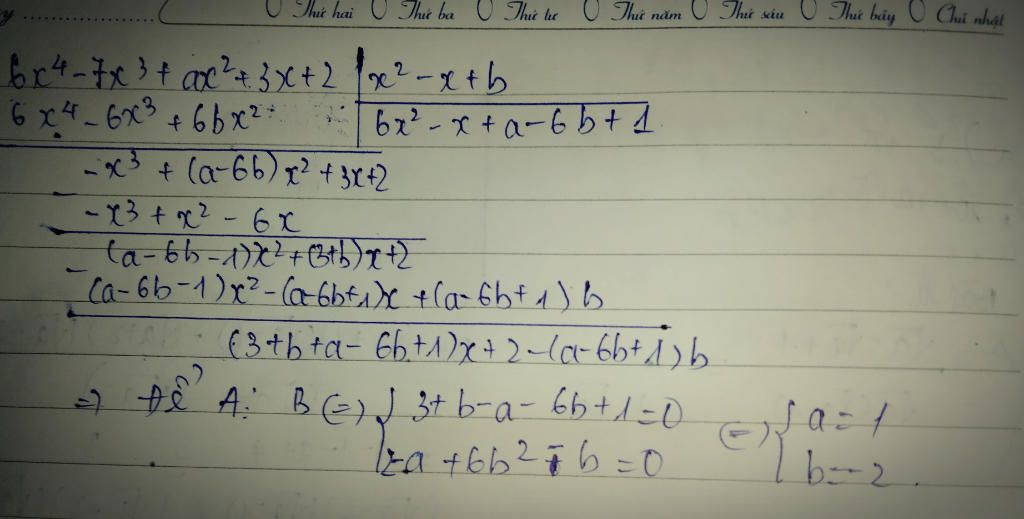 Thứ hai Thứ ba Thứ tư Thứ năm Thứ sáu Thứ bảy Chủ nhật
6x⁴ - 7x³ + ax² + 3x + 2 | x² - x + b
6x⁴ - 6x³ + 6bx² | 6x² - x + a - 6b + 1
- x³ + (a - 6b)x² + 3x + 2
- x³ + x² - 6x
(a - 6b - 1)x² + (3+b)x + 2
(a - 6b - 1)x² - (a - 6b + 1)x + (a - 6b + 1)b
(3 + b + a - 6b + 1)x + 2 - (a - 6b + 1)b
=> Để A ⋮ B (=) { 3 + b - a - 6b + 1 = 0 (=) { a = 1
-a + 6b² - b = 0 b = -2.